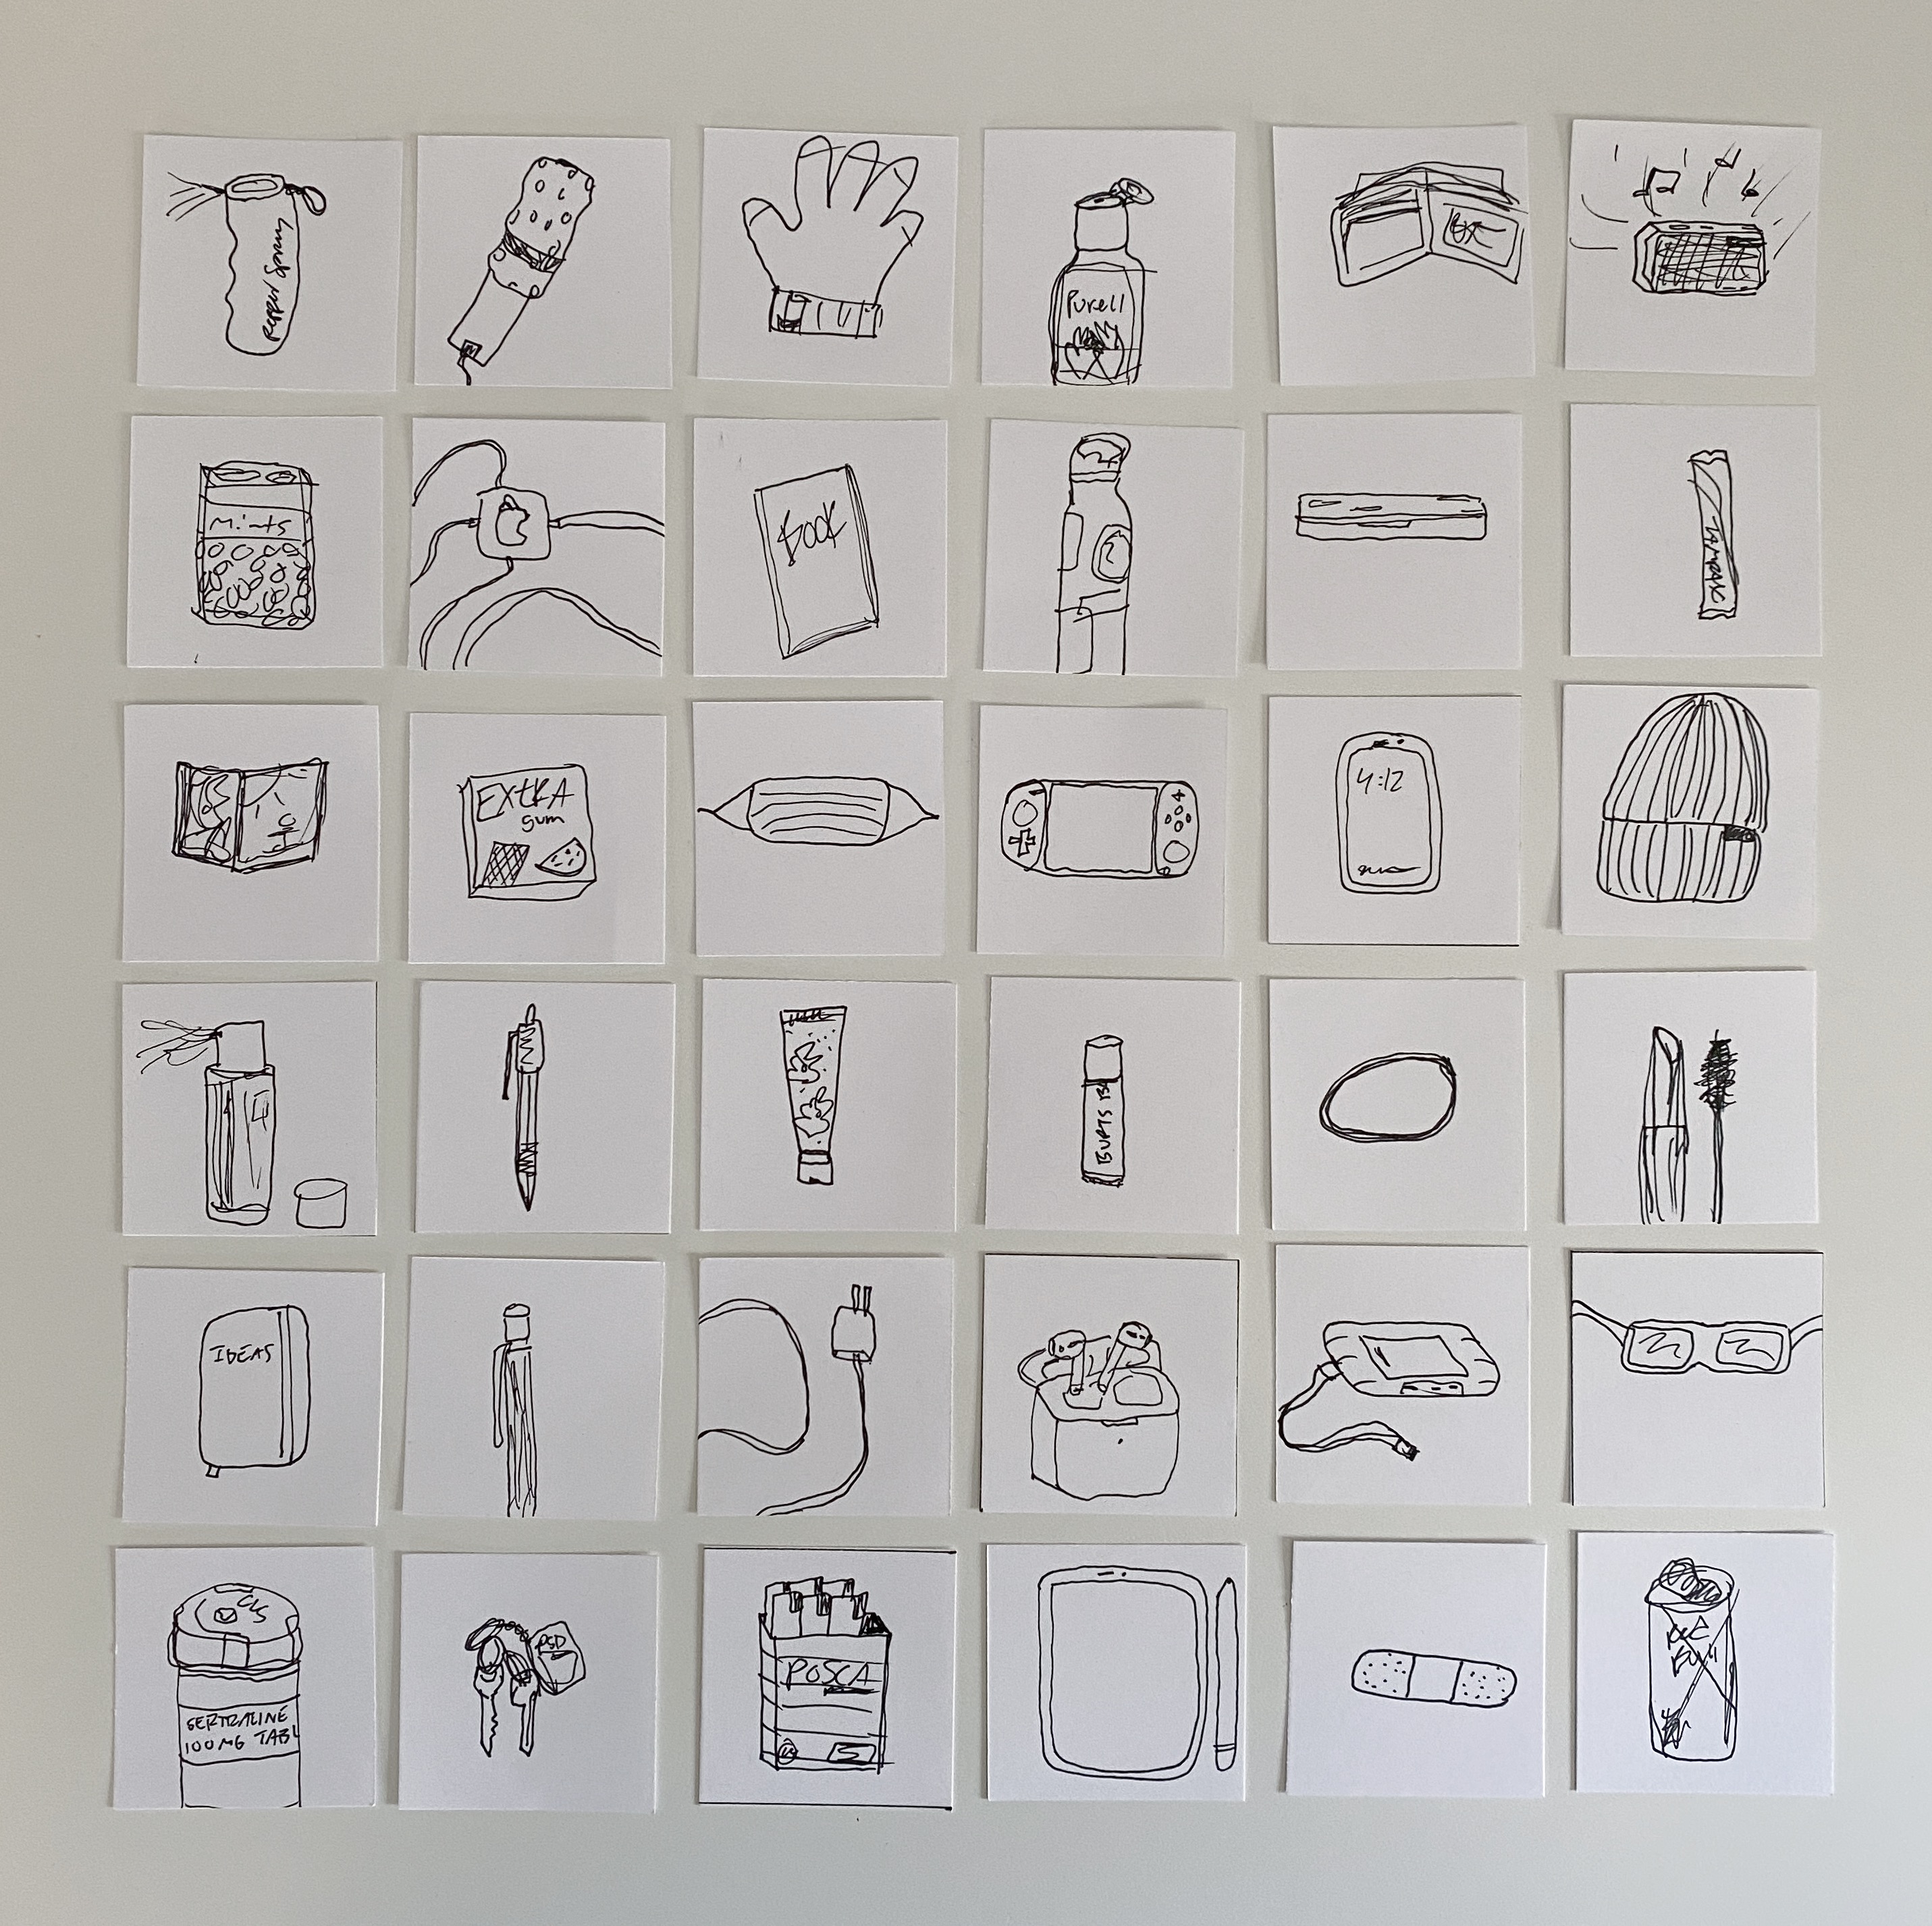 Pepper Spray
Purell
Mints
BOOK
TAMPAX
EXtRA
gum
4:12
BURTS B
IDEAS
CVS
SERTRALINE
100MG TABL
PSD
POSCA